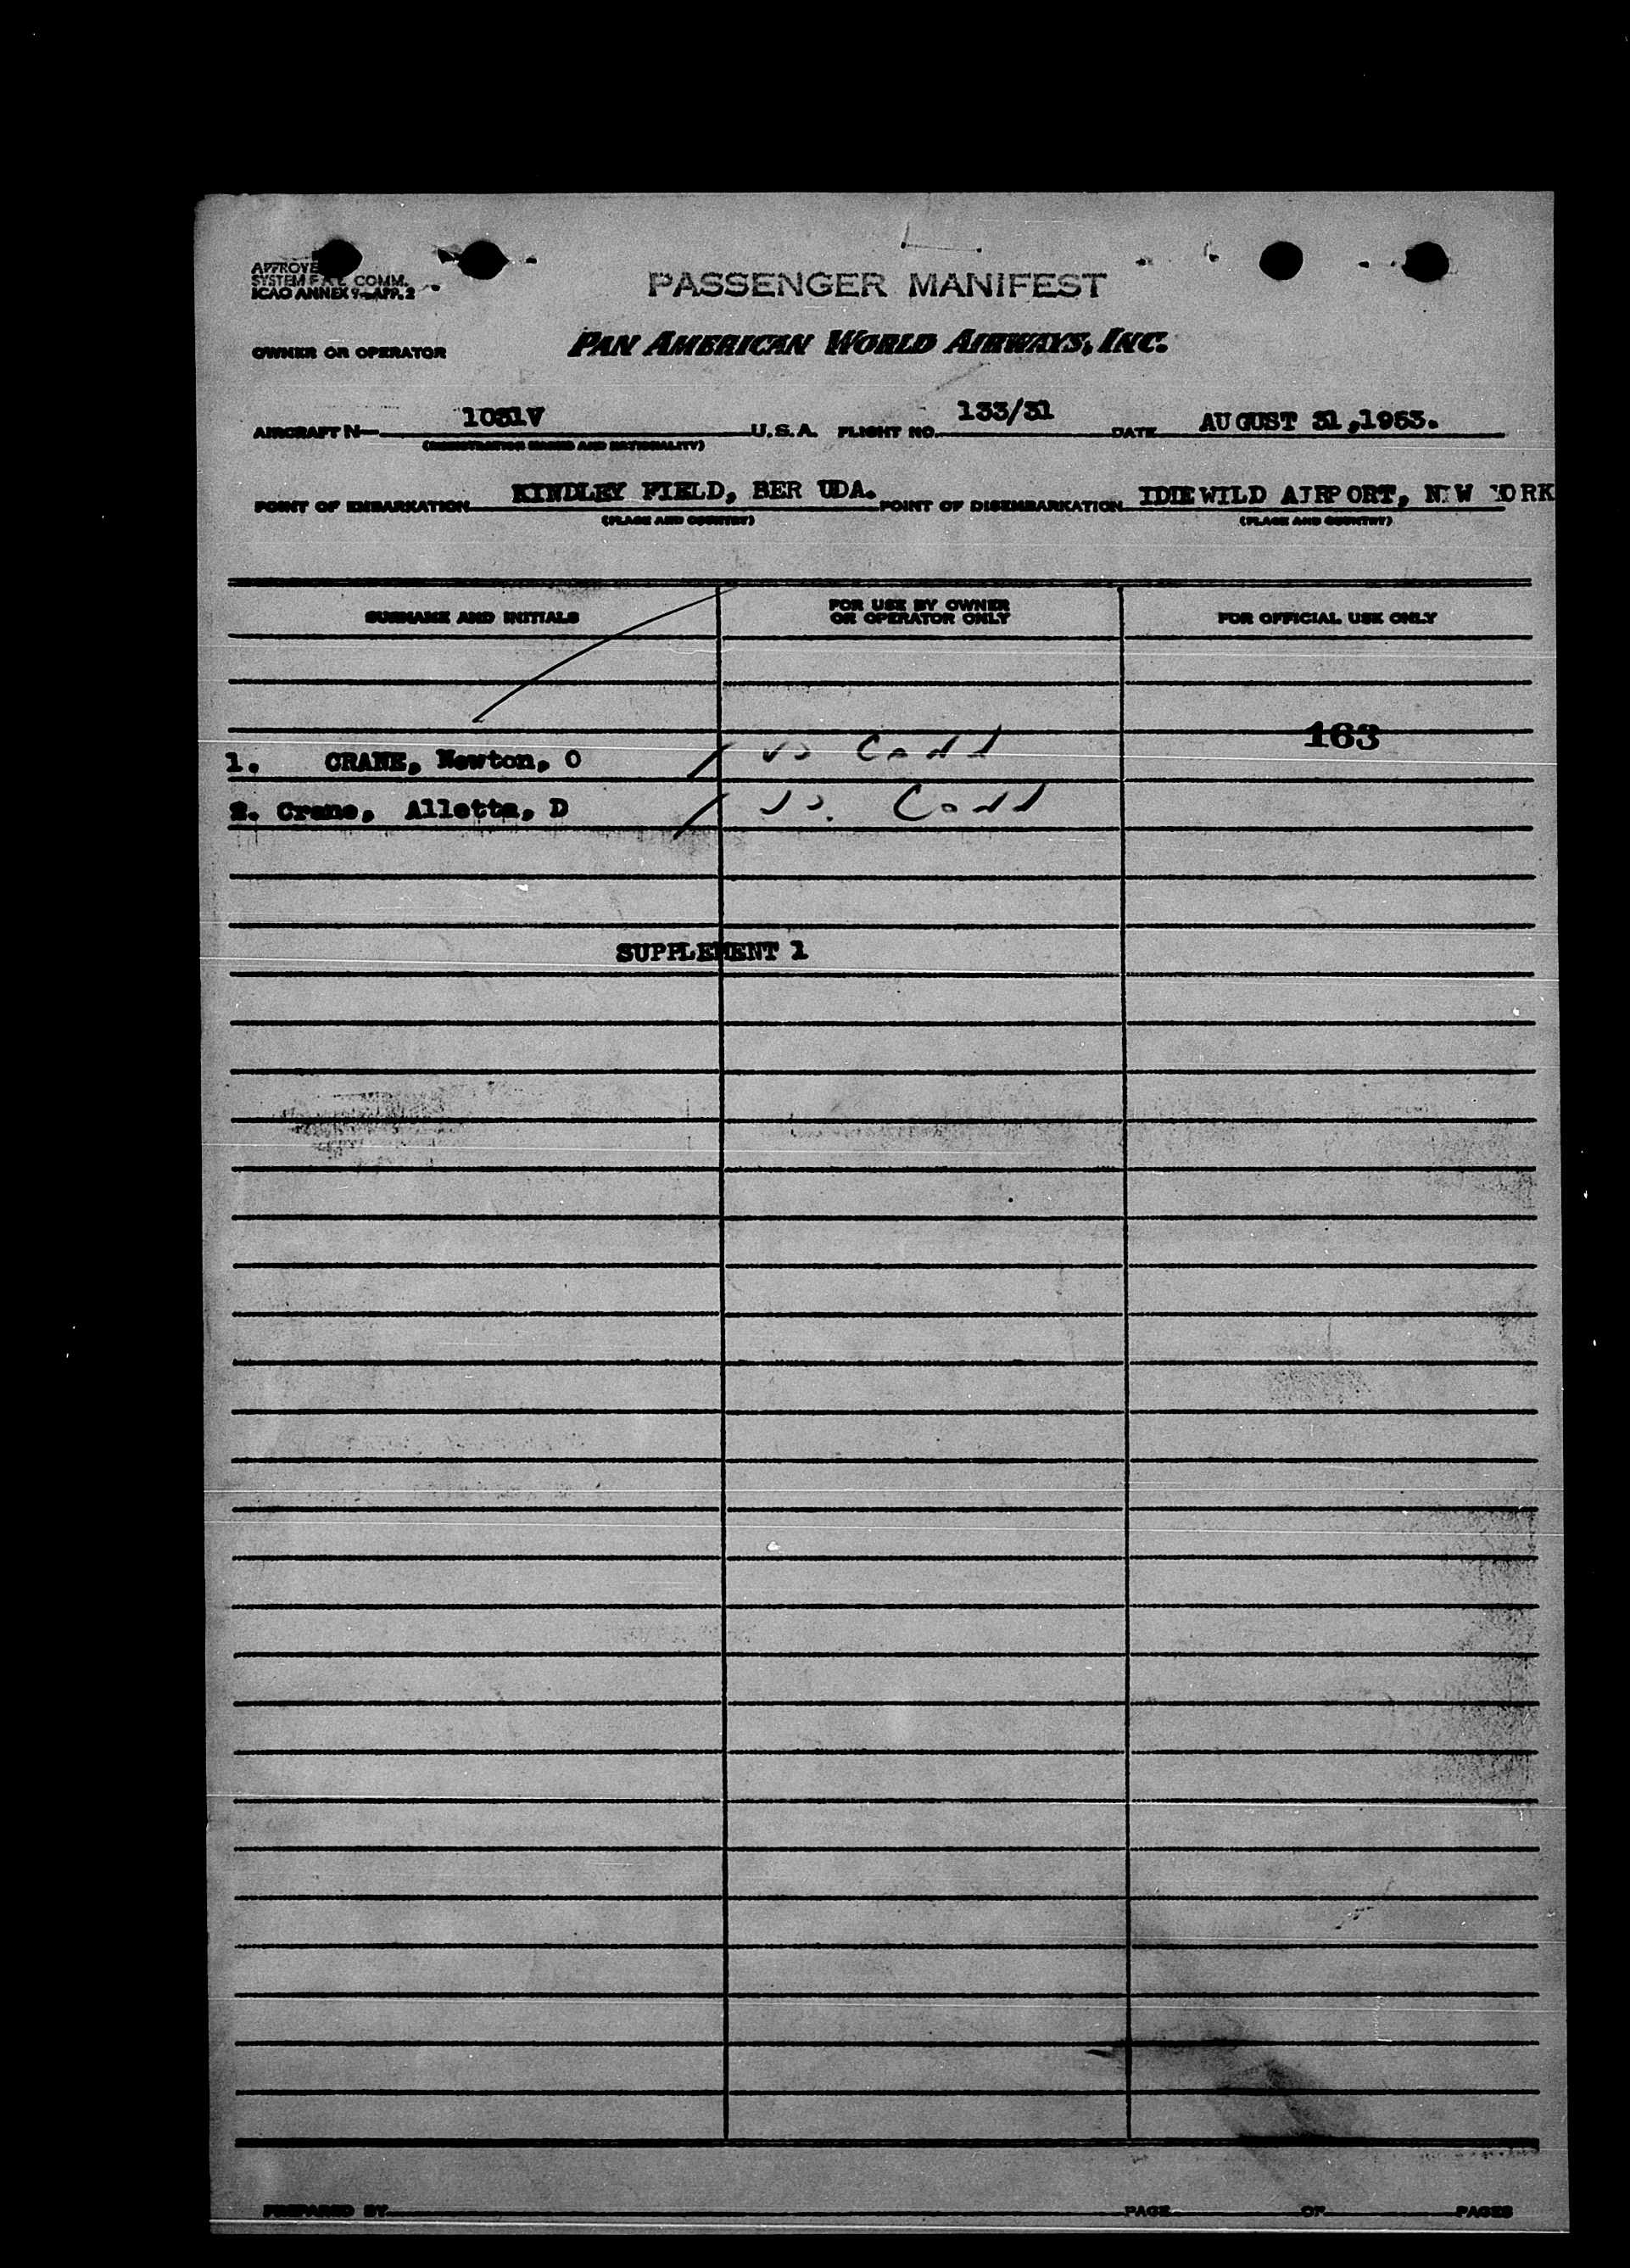 APPROVE
SYSTEM F.A.L. COMM.
ICAO ANNEX 9-APP. 2
PASSENGER MANIFEST
OWNER OR OPERATOR PAN AMERICAN WORLD AIRWAYS, INC.
AIRCRAFT N 1031V U.S.A. FLIGHT NO. 133/31 DATE AUGUST 31,1953.
(REGISTRATION MARKS AND NATIONALITY)
POINT OF EMBARKATION KINDLEY FIELD, BER UDA. POINT OF DISEMBARKATION IDLEWILD AIRPORT, NEW YORK
(PLACE AND COUNTRY) (PLACE AND COUNTRY)
SURNAME AND INITIALS FOR USE BY OWNER OR OPERATOR ONLY FOR OFFICIAL USE ONLY
163
1. CRANE, Newton, O
2. Crane, Alletta, D
SUPPLEMENT 1
PREPARED BY PAGE OF PAGES